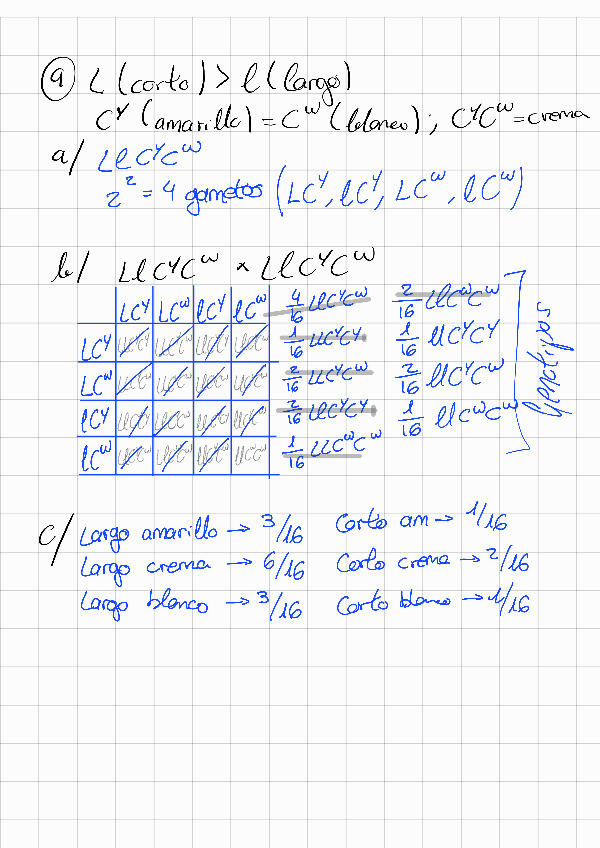 9 L (corto) > l (largo)
Cʸ (amarillo) = Cᵂ (blanco); CʸCᵂ = crema
a/ LlCʸCᵂ
2² = 4 gametos (LCʸ, lCʸ, LCᵂ, lCᵂ)
b/ LlCʸCᵂ × LlCʸCᵂ
LCʸ LCᵂ lCʸ lCᵂ
LCʸ
LCᵂ
lCʸ
lCᵂ
4/16 LlCʸCᵂ 2/16 LlCᵂCᵂ
1/16 LLCʸCʸ 1/16 llCʸCʸ
2/16 LLCʸCᵂ 2/16 llCʸCᵂ
2/16 LlCʸCʸ 1/16 llCᵂCᵂ
1/16 LLCᵂCᵂ
Genotipos
c/ Largo amarillo → 3/16 Corto am → 1/16
Largo crema → 6/16 Corto crema → 2/16
Largo blanco → 3/16 Corto blanco → 1/16